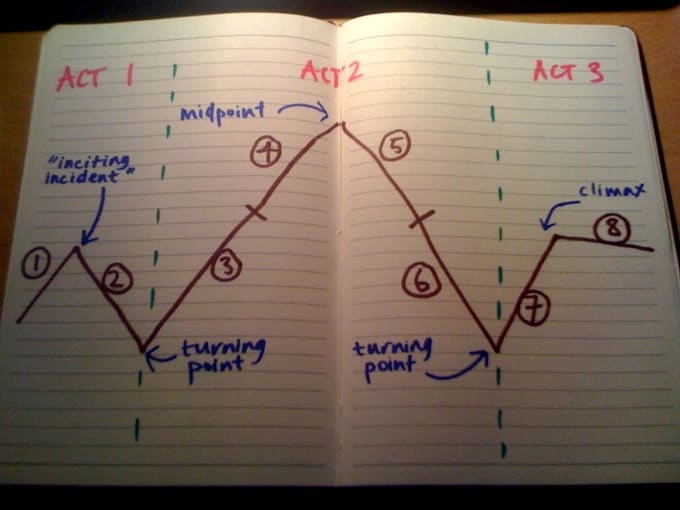 ACT 1
ACT 2
ACT 3
midpoint
"inciting
incident"
climax
1
2
3
4
5
6
7
8
turning
point
turning
point